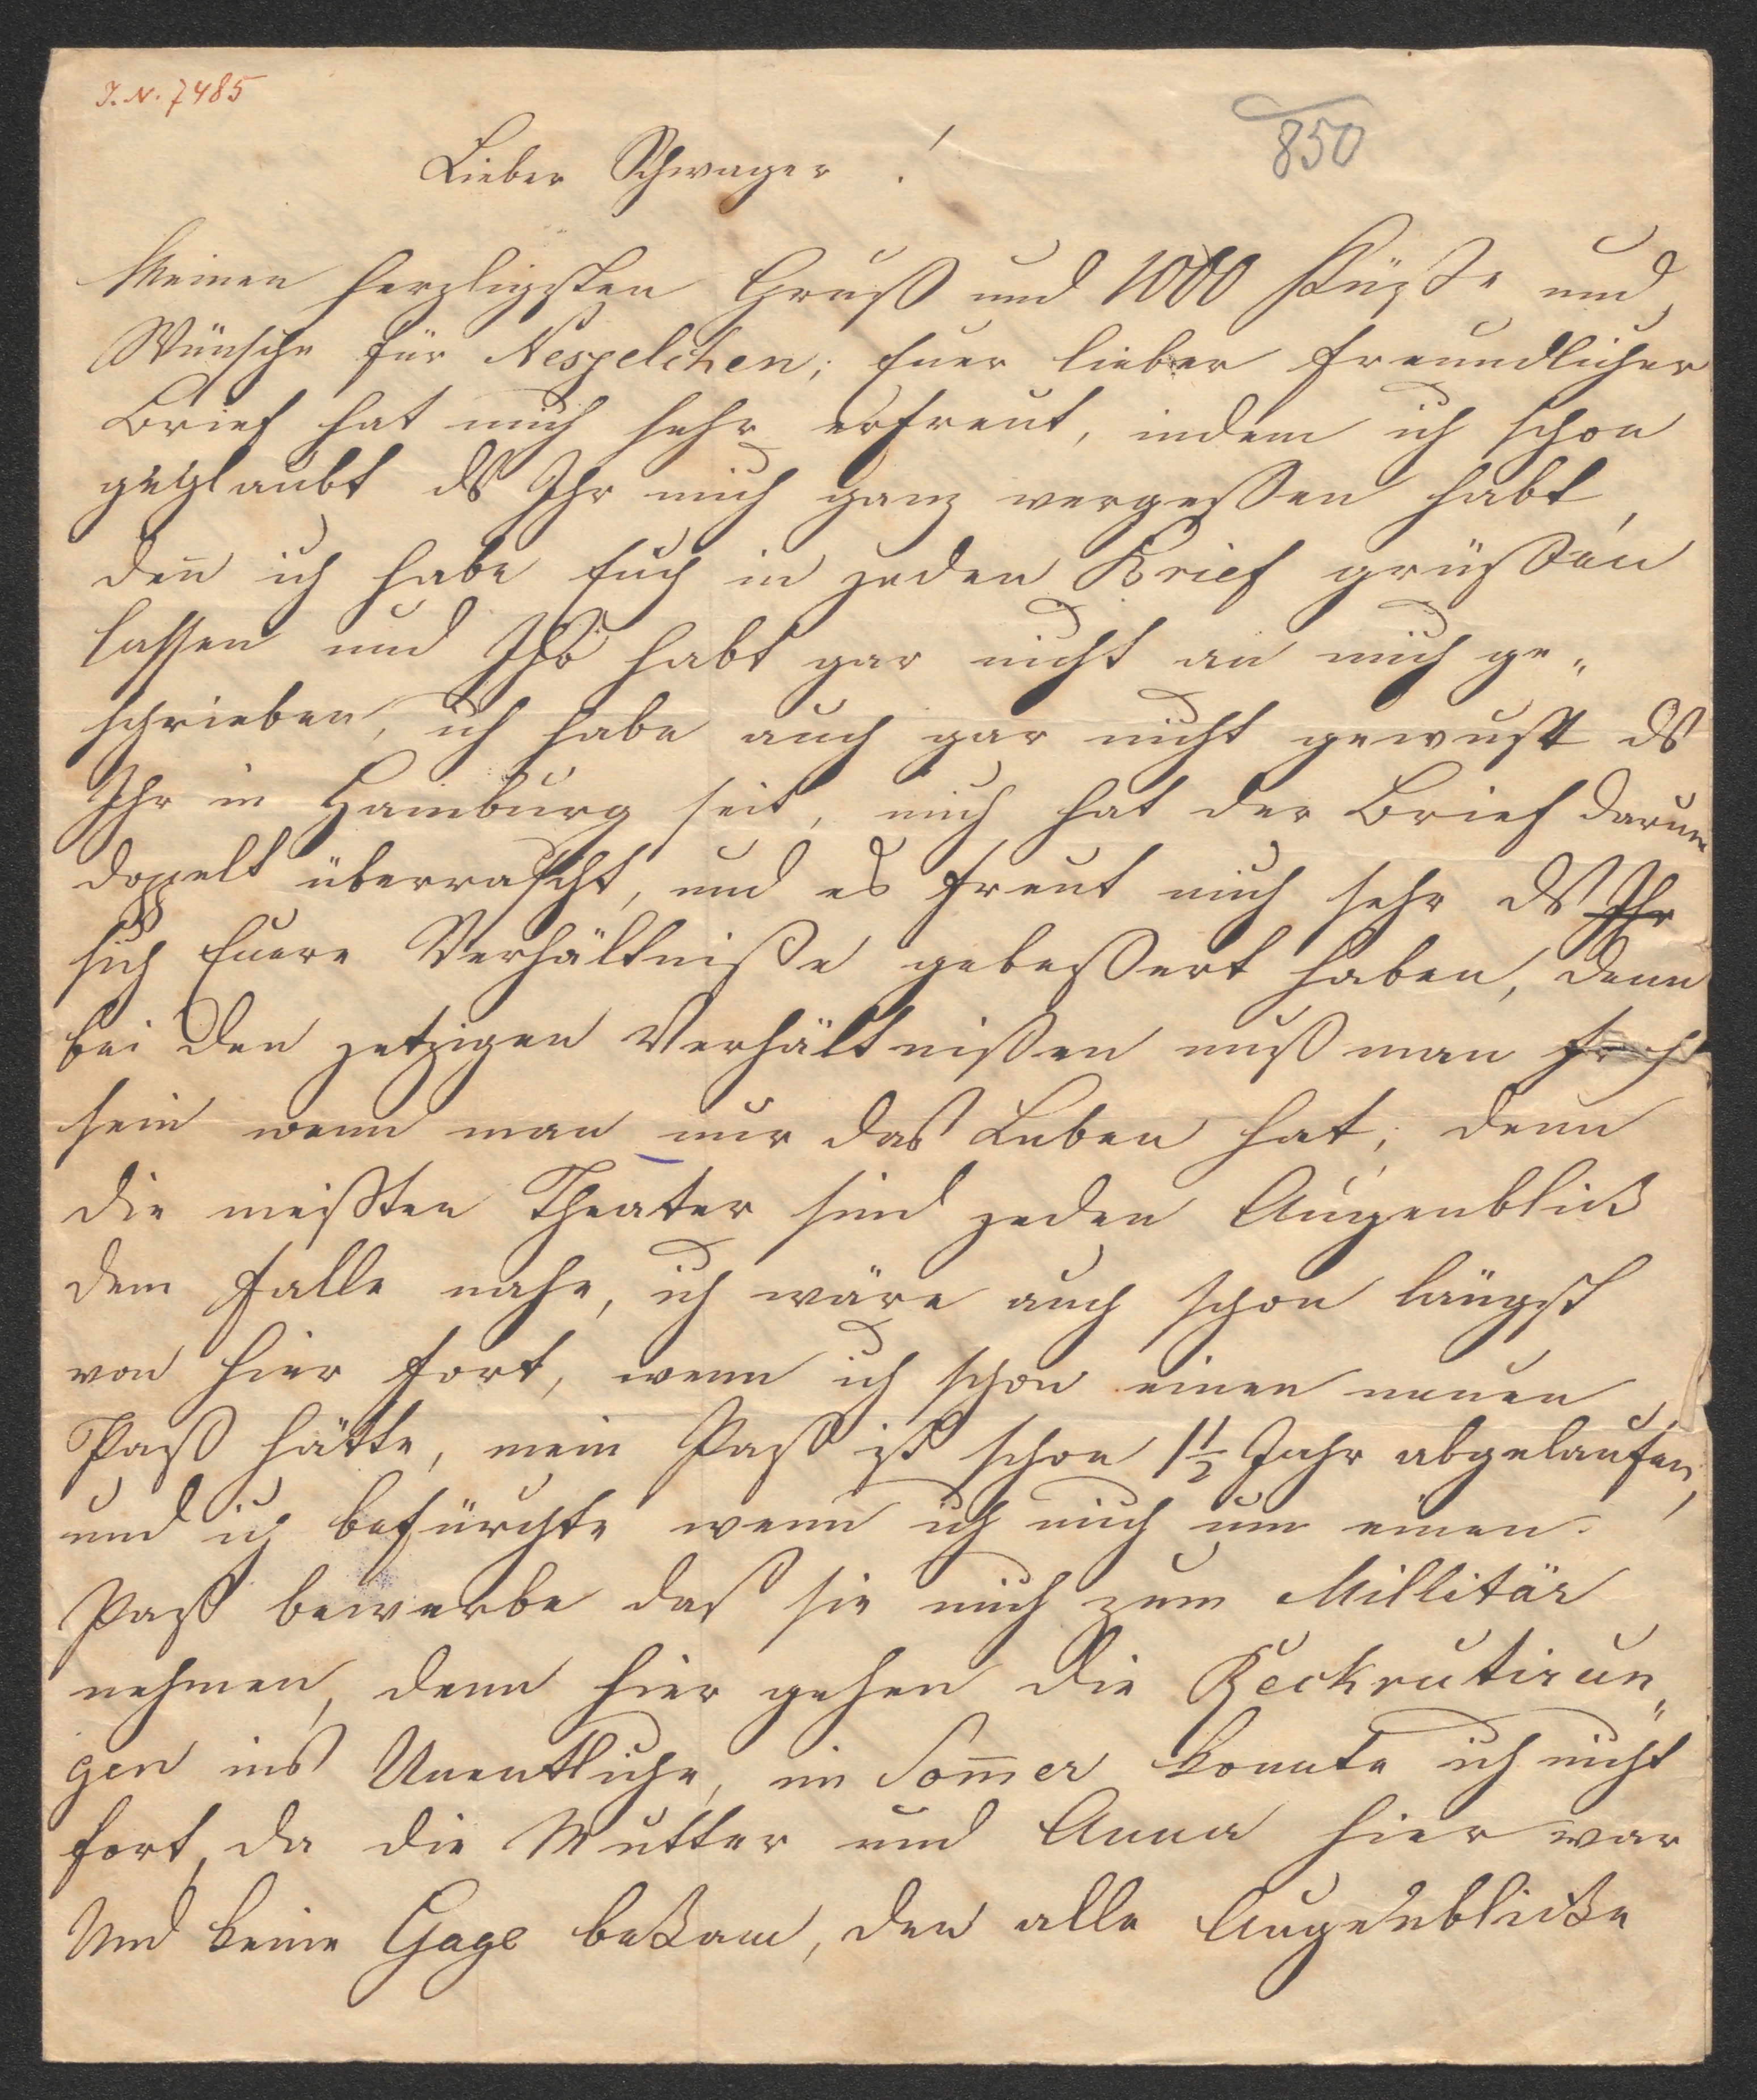 J. N. 7485
850
Lieber Schwager !
Meinen herzligsten Gruß und 1000 Küße und
Wünsche für Nespelchen; Euer lieber freundlicher
Brief hat mich sehr erfreut, indem ich schon
geglaubt ds Ihr mich ganz vergeßen habt,
den̄ ich habe Euch in jeden Brief grüßen
lassen und Ihr habt gar nicht an mich ge„
schrieben, ich habe auch gar nicht gewust ds
Ihr in Hamburg seit, mich hat der Brief darum
doppelt überrascht, und es freut mich sehr ds Ihr
sich Euere Verhältniße gebeßert haben, denn
bei den jetzigen Verhältnißen muß man froh
sein wenn man nur das Leben hat; denn
die meißten Theater sind jeden Augenblick
dem Falle nahe, ich wäre auch schon längst
von hier fort, wenn ich schon einen neuen
Paß hätte, mein Paß ist schon 1½ Jahr abgelaufen,
und ich befürchte wenn ich mich um einen
Paß bewerbe das sie mich zum Millitär
nehmen, denn hier gehen die Reckrutirun„
gen ins Unentliche, im Som̄er konnte ich nicht
fort, da die Mutter und Anna hier war
Und keine Gage bekam, den alle Augenblicke